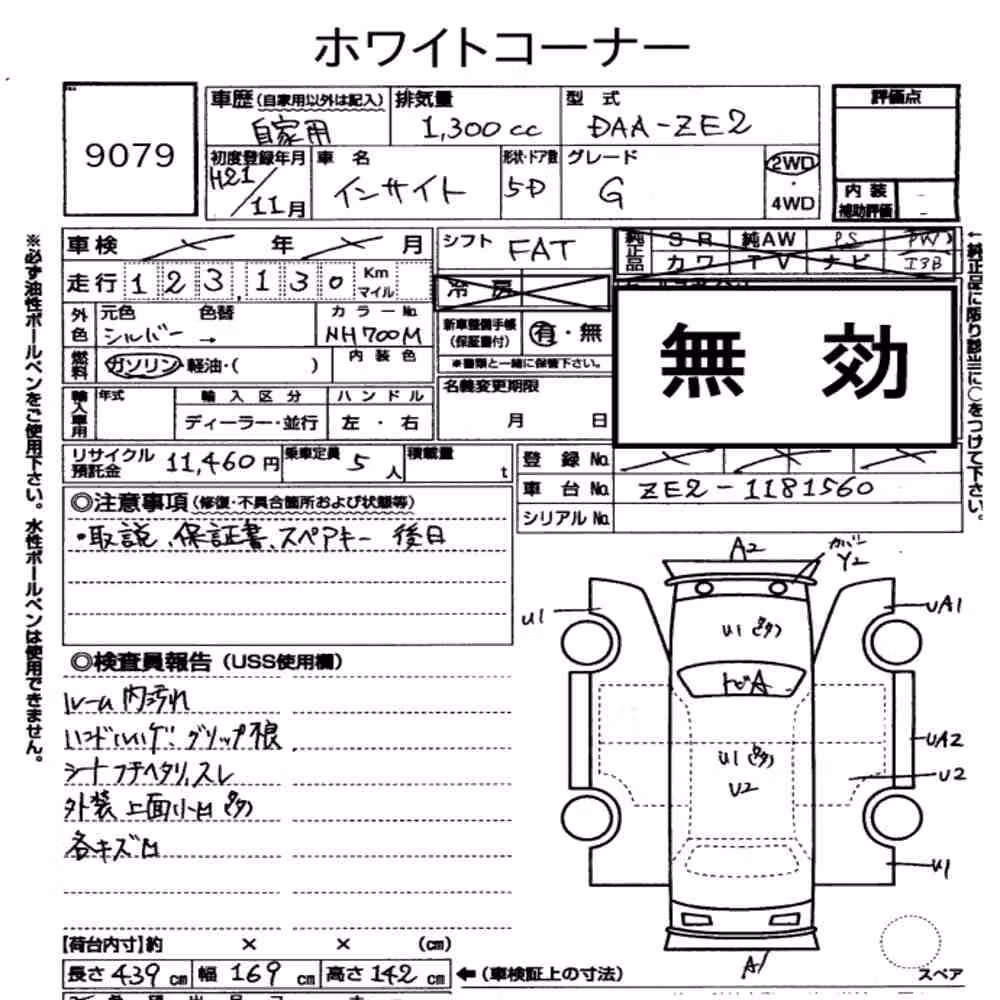 ホワイトコーナー
9079
車歴 (自家用以外は記入) 自家用
排気量 1,300cc
型式 DAA-ZE2
評価点
初度登録年月 H21/11月
車名 インサイト
形状・ドア数 5D
グレード G
2WD・4WD
内装
補助評価
車検 年 月
シフト FAT
純正品 SR 純AW PS PW
カワ TV ナビ
走行 123,130 Km マイル
冷房
外色 元色 シルバー → 色替
カラーNo. NH700M
新車整備手帳(保証書付) 有・無
※書類と一緒に保管下さい。
無効
燃料 ガソリン・軽油・( )
内装色
名義変更期限
月 日
輸入車用 年式 輸入区分 ハンドル
ディーラー・並行 左・右
リサイクル預託金 11,460円
乗車定員 5人
積載量 t
登録No.
車台No. ZE2-1181560
シリアルNo.
※必ず油性ボールペンをご使用下さい。水性ボールペンは使用できません。
←純正品に限り該当に○をつけて下さい。
◎注意事項 (修復・不具合箇所および状態等)
・取説、保証書、スペアキー 後日
◎検査員報告 (USS使用欄)
ルーム内汚れ
グリップ痕
スレ
外装上面小
各キズ
A2
カバー Y2
U1
UA1
U1
トビA
UA2
U1
U2
U2
U1
A1
スペア
【荷台内寸】約 × × (cm)
長さ 439 cm 幅 169 cm 高さ 142 cm ←(車検証上の寸法)